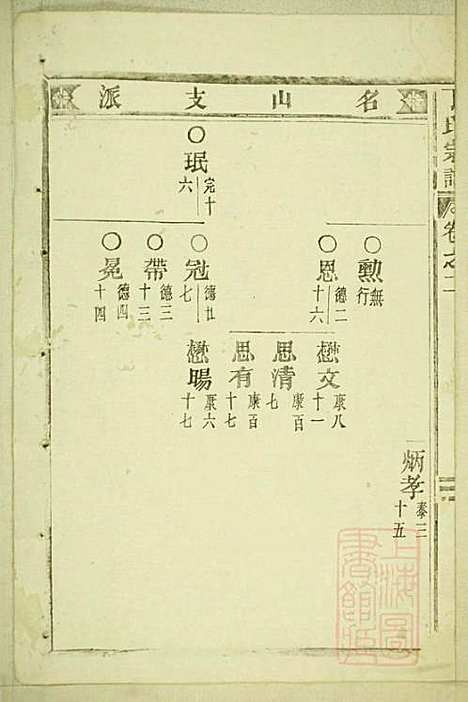 氏宗譜 卷之二
名山支派
珉 完十六
勲 無行
恩 德二十六
冠 德廿七
帶 德三十三
冕 德四十四
懋文 康八十一
思清 康百七
思有 康百十七
懋暘 康六十七
炳孝 泰三十五
上海圖書館藏